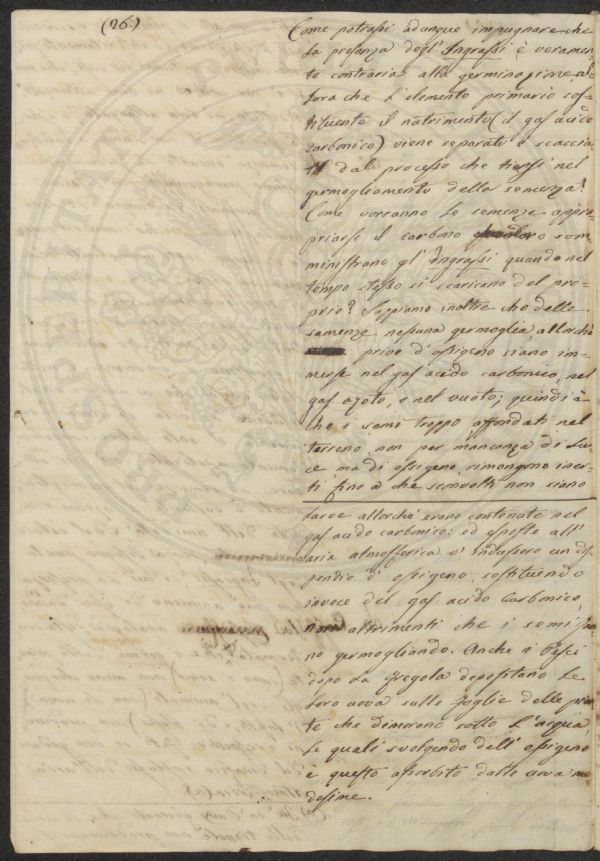 (26.)
Come potrassi adunque impugnare che
la presenza degl' Ingrassi è veramen=
te contraria alla germinazione al=
lora che l'elemento primario cos=
tituente il nutrimento (il gas acido
carbonico) viene separato e scaccia=
to dal processo che tiensi nel
germogliamento della semenza?
Come vorranno le semenze appro=
priarsi il carbono loro som=
ministrano gl' Ingrassi quando nel
tempo stesso si scaricano del pro=
prio? Sappiamo inoltre che delle
semenze nessuna germoglia, allorchè
prive d'ossigeno siano im=
merse nel gas acido carbonico, nel
gas azoto, e nel vuoto; quindi è
che i semi troppo affondati nel
terreno, non per mancanza di lu=
ce ma di ossigeno, rimangono iner=
ti fino a che sconvolti non siano
larve allorchè erano contenute nel
gas acido carbonico; ed esposte all'
aria atmosferica v' indussero un dis=
pendio d' ossigeno, sostituendo
invece del gas acido carbonico,
non altrimenti che i semi fan=
no germogliando. Anche i Pesci
dopo la fregola depositano le
loro uova sulle foglie delle pian=
te che dimorono sotto l'acqua,
le quali svolgendo dell' ossigeno
è questo assorbito dalle uova me=
desime.
PROSPERITATI PUB